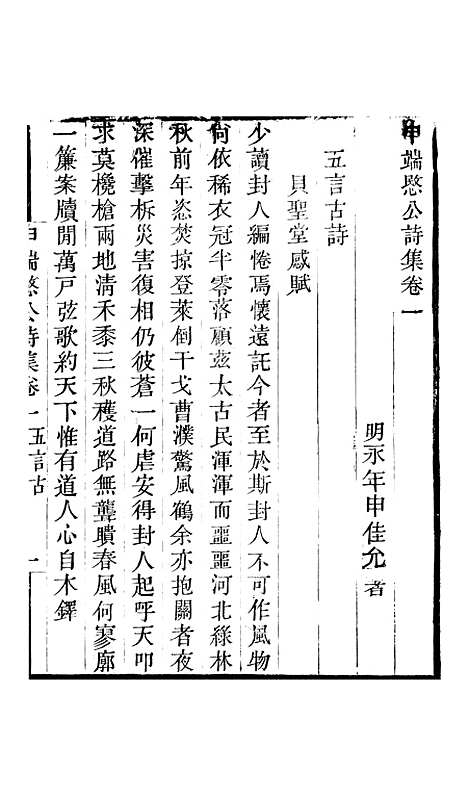 申端愍公詩集卷一
明永年申佳允著
五言古詩
貝聖堂感賦
少讀封人編惓焉懷遠託今者至於斯封人不可作風物
何依稀衣冠半零落顧茲太古民渾渾而噩噩河北綠林
秋前年恣焚掠登萊倒干戈曹濮驚風鶴余亦抱關者夜
深催擊柝災害復相仍彼蒼一何虐安得封人起呼天叩
求莫欃槍兩地清禾黍三秋穫道路無聾聵春風何寥廓
一簾案牘閒萬戸弦歌約天下惟有道人心自木鐸
申端愍公詩集卷一五言古 一